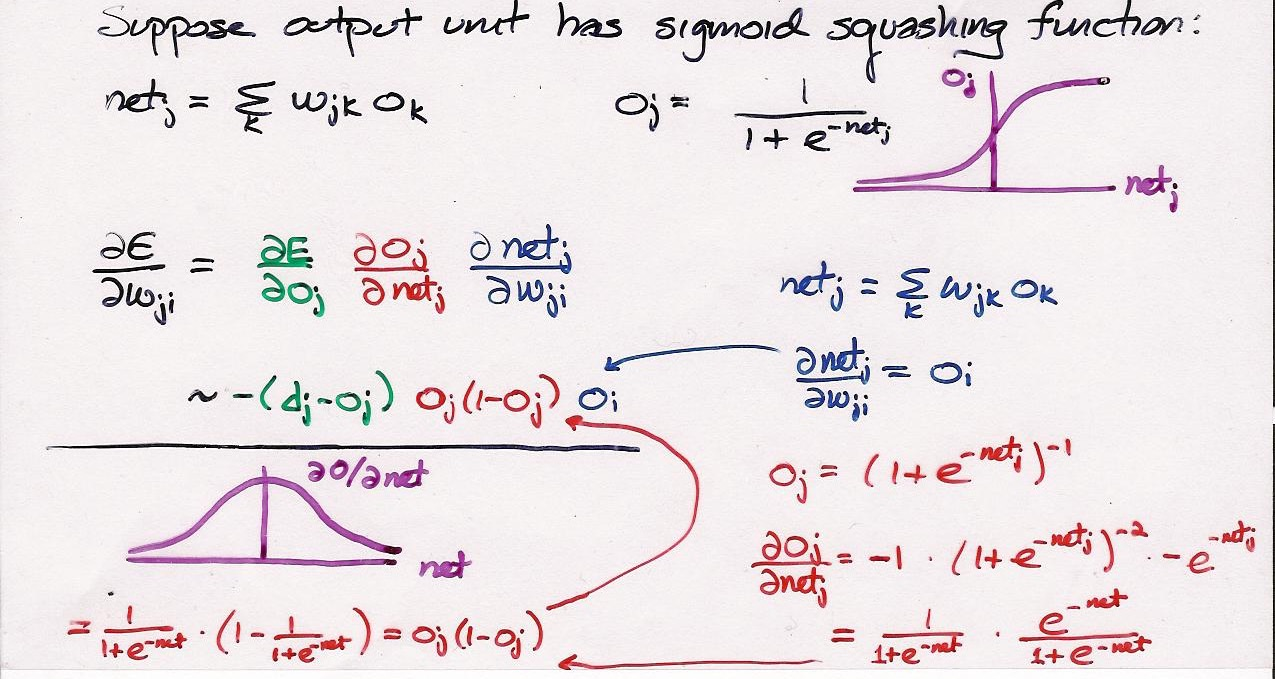 Suppose output unit has sigmoid squashing function:
net_j = Σ_k w_jk o_k
o_j = 1 / (1 + e^(-net_j))
o_j
net_j
∂E/∂w_ji = ∂E/∂o_j ∂o_j/∂net_j ∂net_j/∂w_ji
net_j = Σ_k w_jk o_k
∂net_j/∂w_ji = o_i
~ -(d_j - o_j) o_j(1-o_j) o_i
∂o/∂net
net
o_j = (1 + e^(-net_j))^(-1)
∂o_j/∂net_j = -1 · (1 + e^(-net_j))^(-2) · -e^(-net_j)
= 1/(1+e^(-net)) · e^(-net)/(1+e^(-net))
= 1/(1+e^(-net)) · (1 - 1/(1+e^(-net))) = o_j(1-o_j)